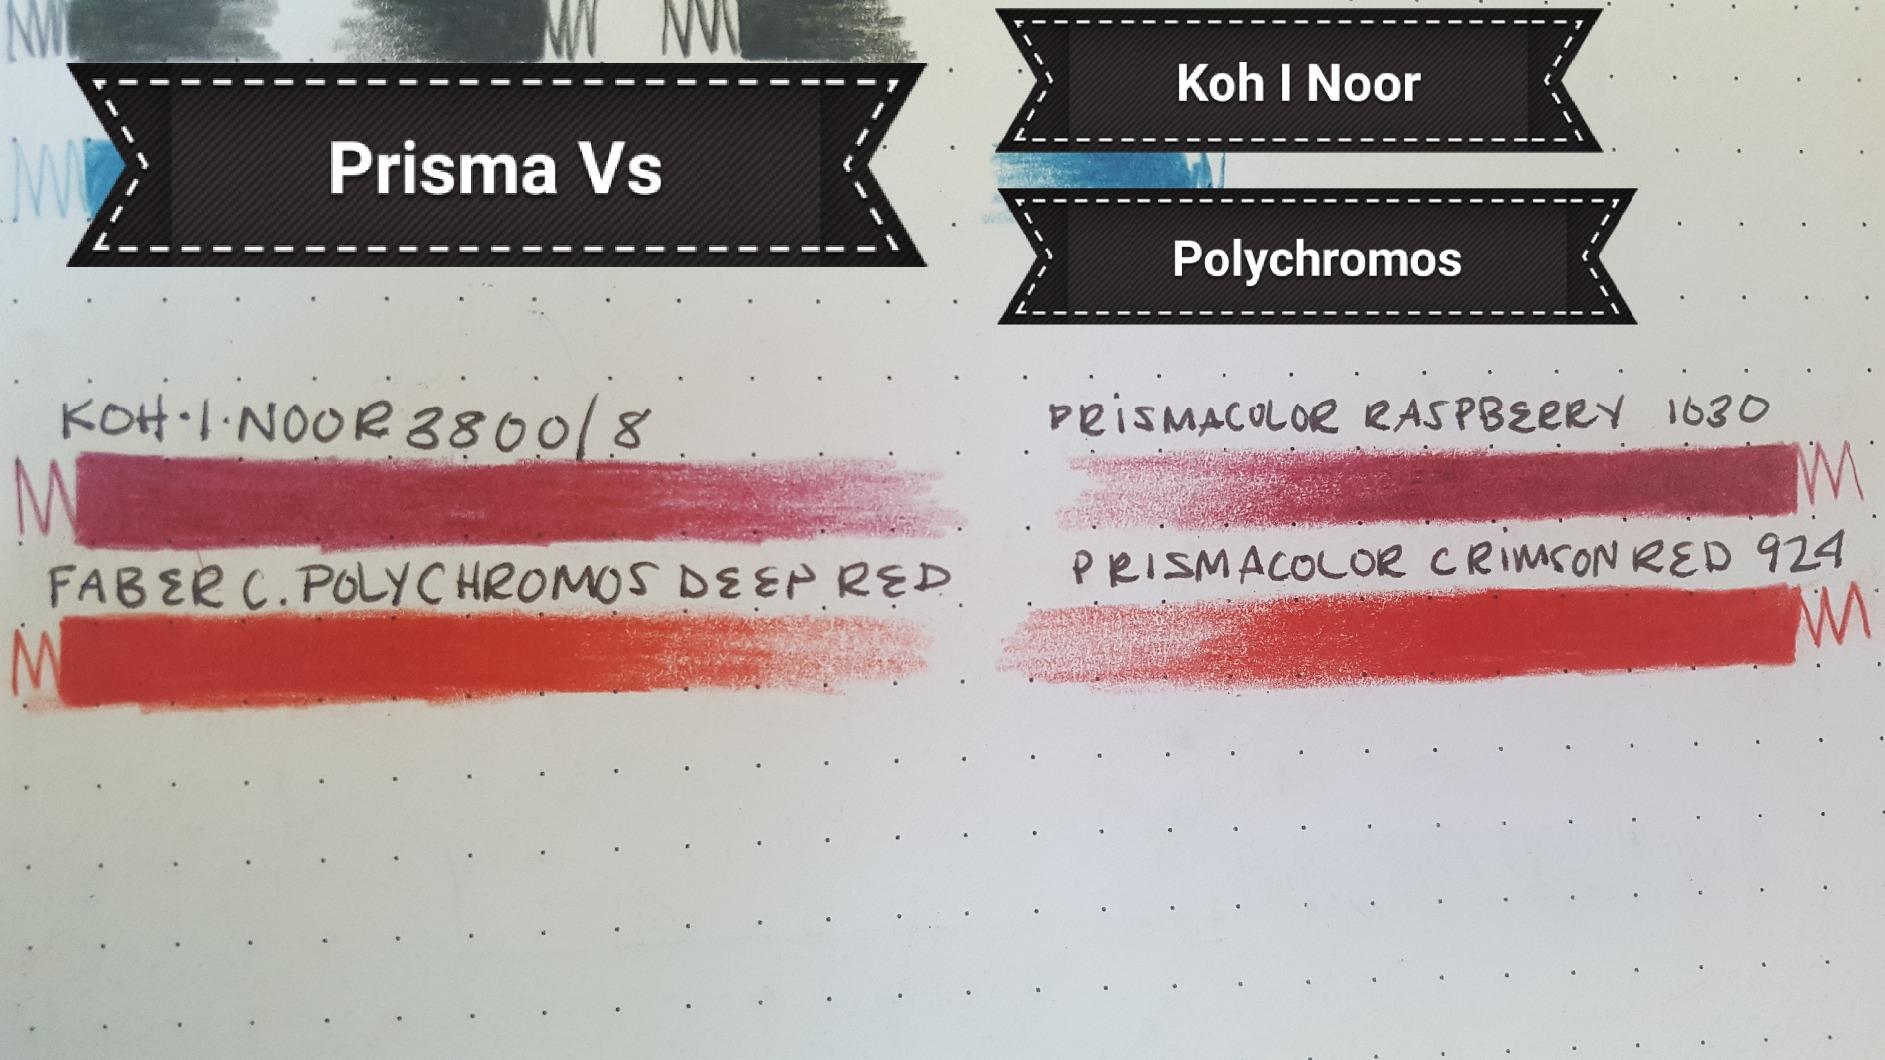 Prisma Vs
Koh I Noor
Polychromos
KOH·I·NOOR 3800/8
PRiSMACOLOR RASPBERRY 1030
FABER C. POLYCHROMOS DEEP RED
PRISMACOLOR CRiMSON RED 924